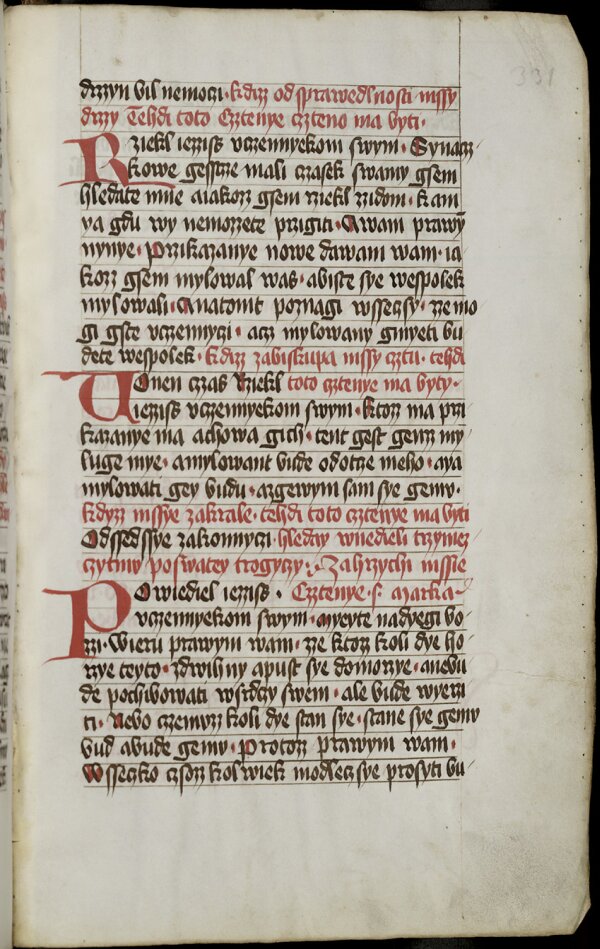 331
drzyn bil nemoci · kdiz od sprawedlnosti mssy
drzy Tehdi toto Cztenye czteno ma byti ·
Rziekl ieziss vczennyekom swym · Synacz
kowe gesstze mali czasek swamy gsem
hledate mne aiakoz gsem rziekl zidom · kam
ya gdu wy nemozete przigiti · Awam prawy
nynye · Przikazanye nowe dawam wam · ia
koz gsem mylowal was · abiste sye wespolek
mylowali · Anatomt poznagi wssiczsy · ze mo
gi gste vczennyczi · acz mylowany gmyeti bu
dete wespolek · kdiz zabiskupa mssy cztu · tehdi
Tonen czas Rziekl toto cztenye ma byty ·
ieziss vczennyekom swym · ktoz ma przi
kazanye ma achowa gich · tent gest genz my
luge mye · amylowant bude odotcze meho · aya
mylowati gey budu · azgewym sam sye gemv ·
kdyz mssye zakrale · tehdi toto cztenye ma byti
Odssedssye zakonnyczi · hleday wnedieli trzymez
czytmv poswatey trogyczy · Zahrzychi mssie
Powiediel ieziss · Cztenye · s · Marka
vczennyekom swym · Myeyte nadyegi bo
zi · Wieru prawym wam · ze ktoz koli dye ho
rzye teyto · zdwihny apust sye domorzye · anebu
de pochibowati wsrdczy swem · ale bude wyerzi
ti · Nebo czemuz koli dye stan sye · stane sye gemv
bud abude gemv · Protoz prawym wam ·
Wsseczko czsoz kolwiek modlecz sye prosyti bu